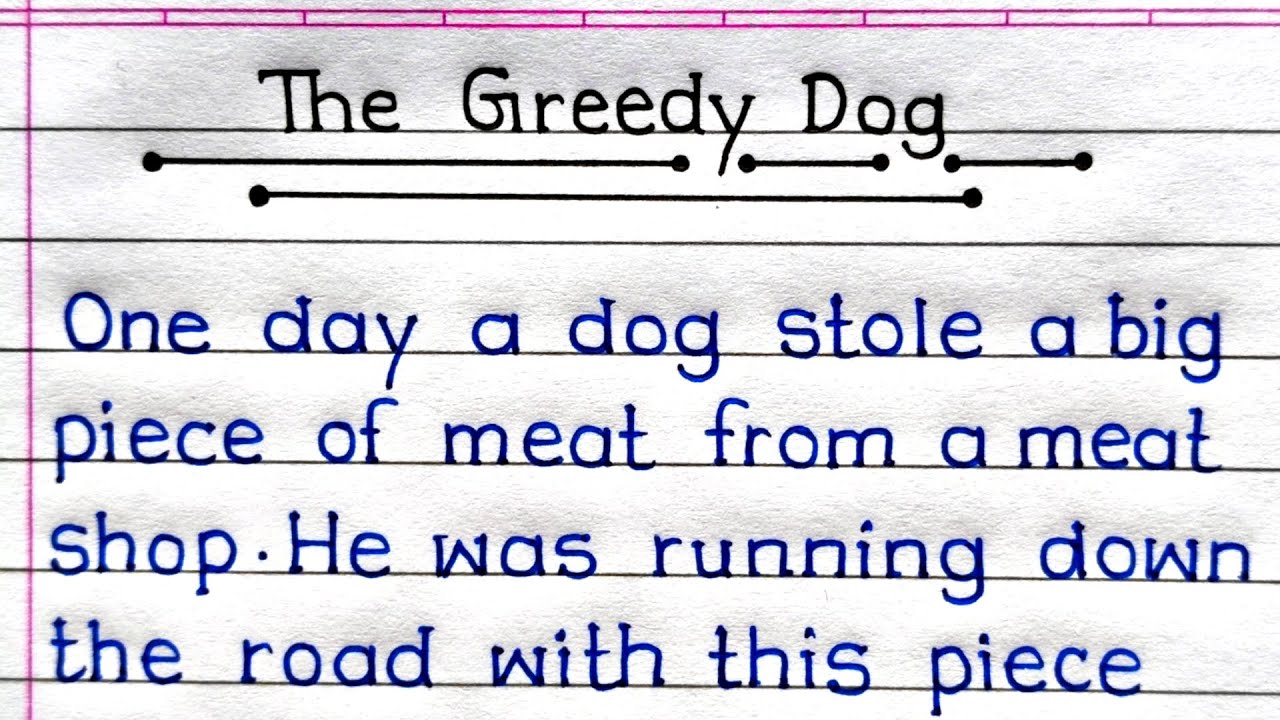 The Greedy Dog
One day a dog stole a big
piece of meat from a meat
shop. He was running down
the road with this piece